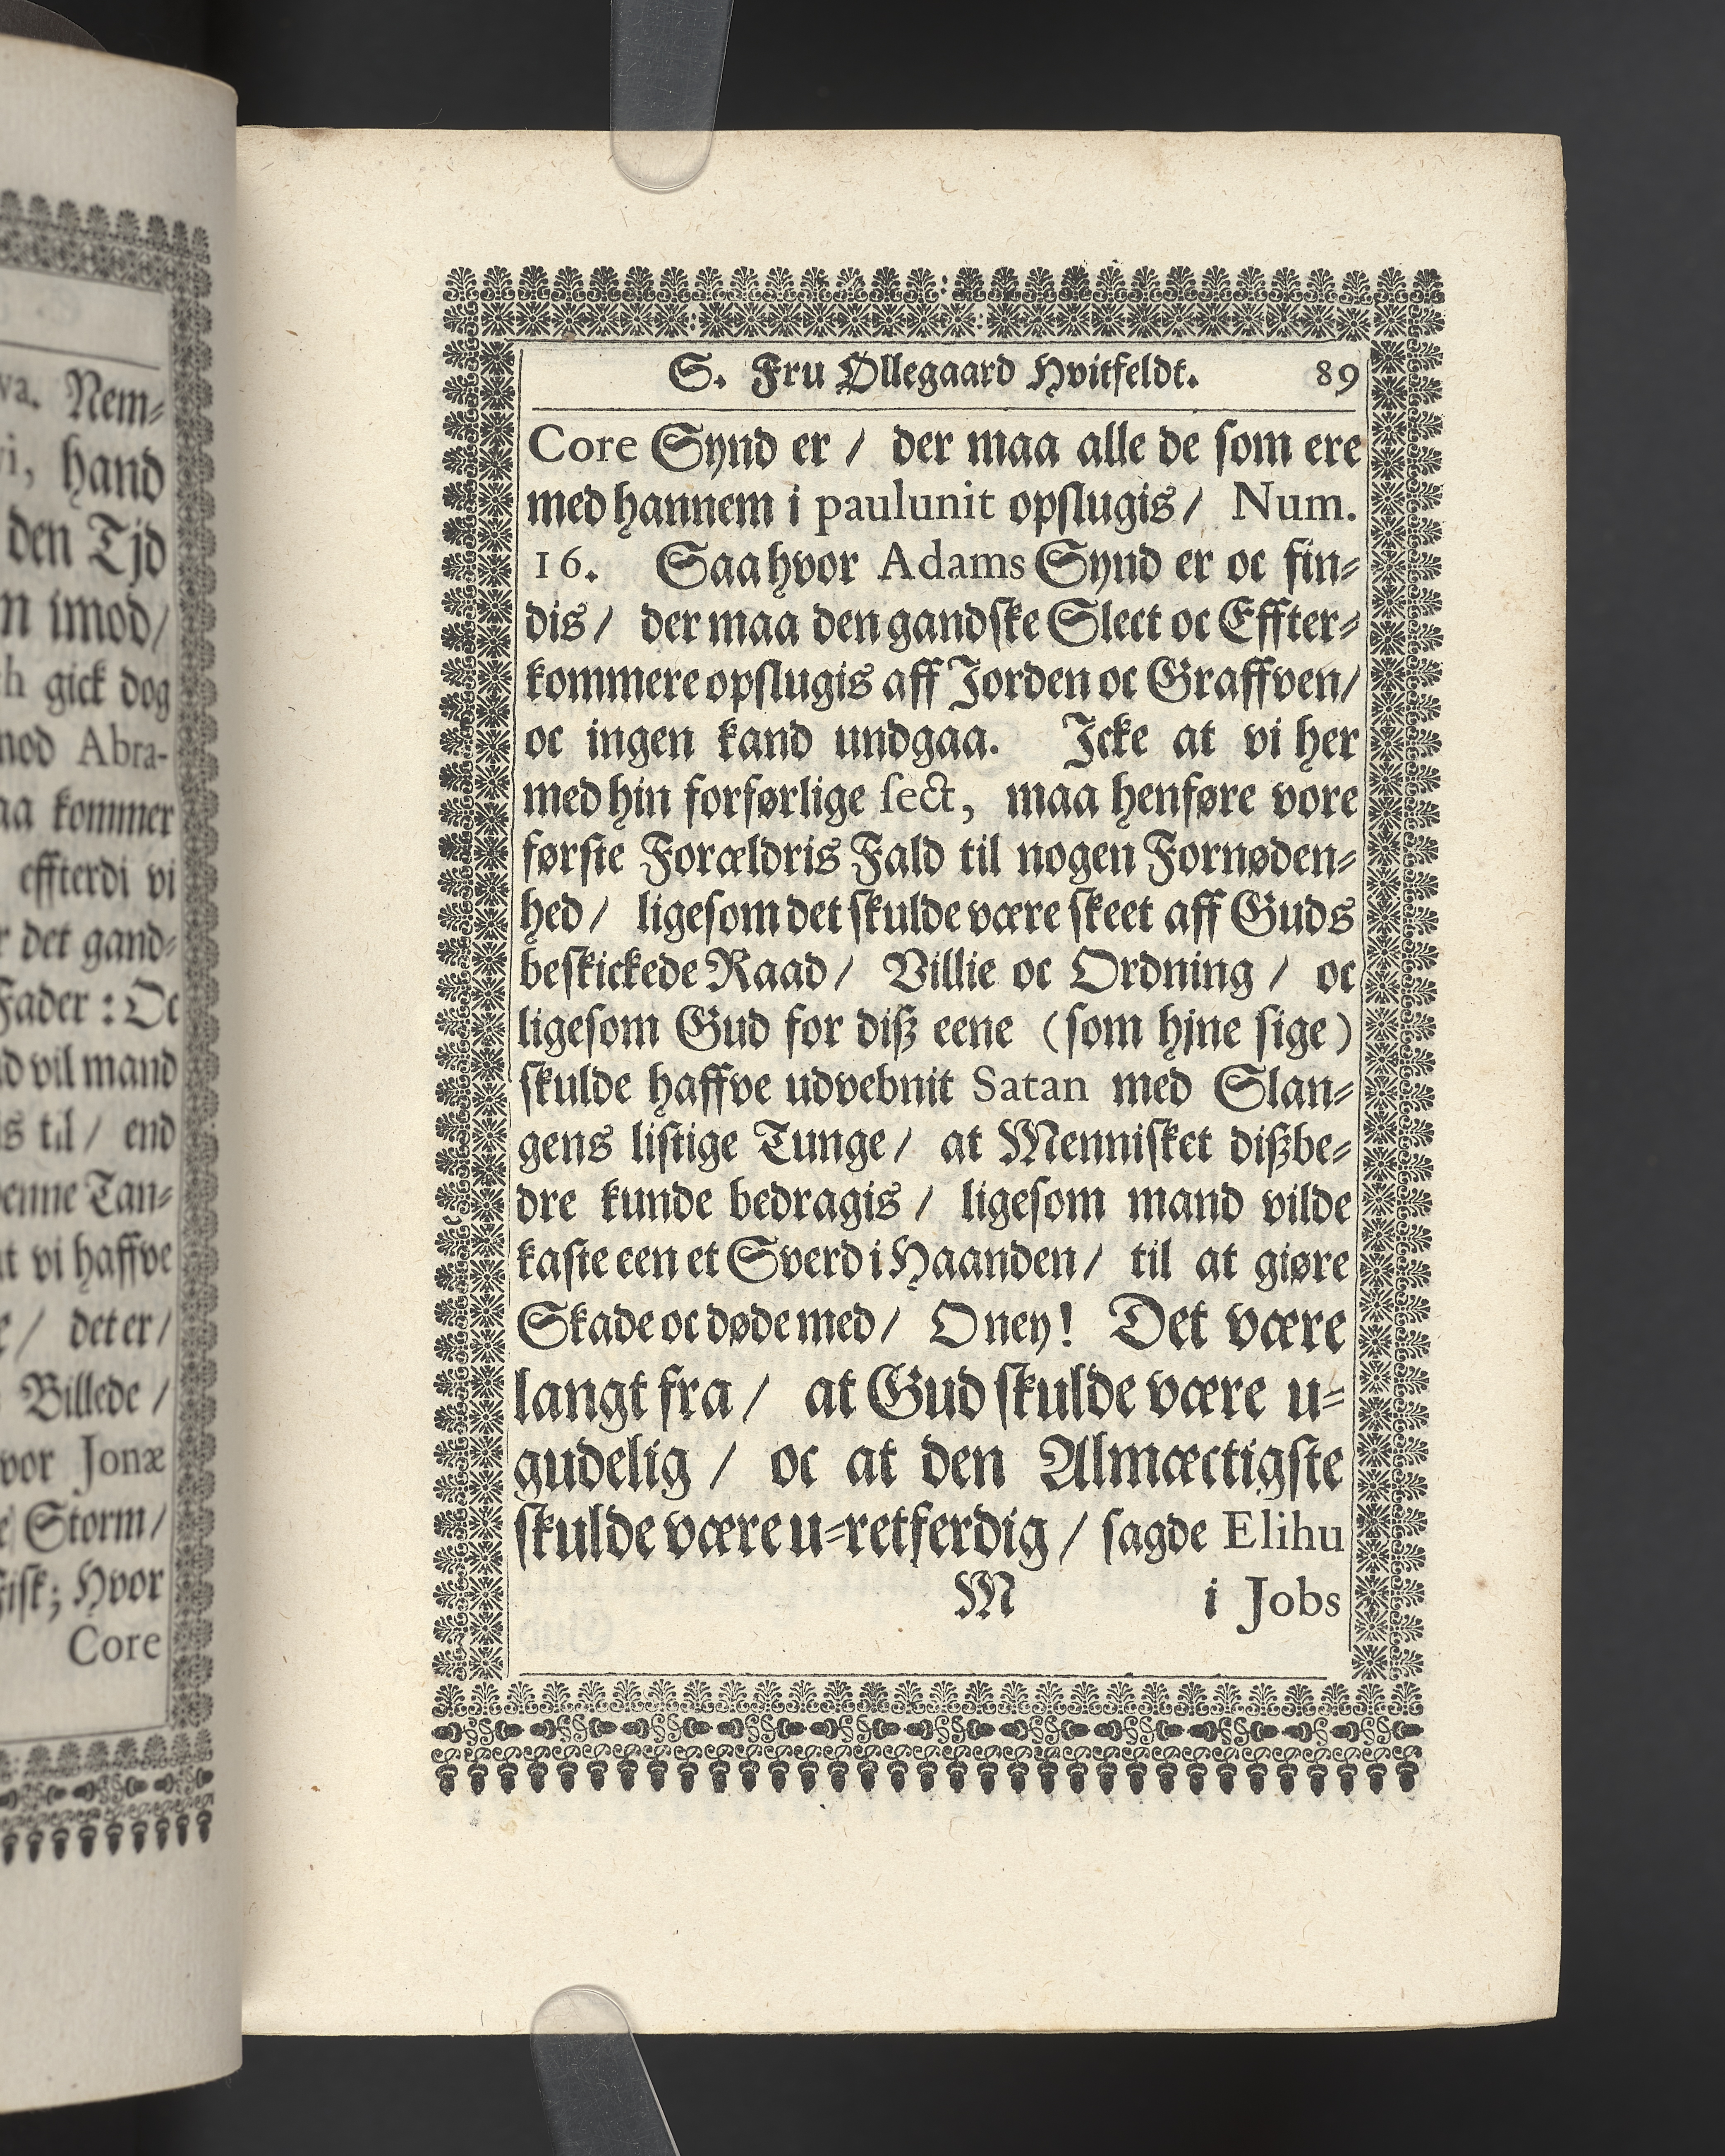 va. Nem⸗
vi, hand
den Tjd
n imod/
h gick dog
mod Abra-
aa kommer
effterdi vi
r det gand⸗
Fader : Oc
d vil mand
is til / end
denne Tan⸗
at vi haffve
e / det er /
Billede /
vor Jonæ
e Storm/
Fisk; Hvor
Core
S. Fru Øllegaard Hvitfeldt. 89
Core Synd er / der maa alle de ſom ere
med hannem i paulunit opſlugis / Num.
16. Saa hvor Adams Synd er oc fin⸗
dis / der maa den gandſke Slect oc Effter⸗
kommere opſlugis aff Jorden oc Graffven/
oc ingen kand undgaa. Icke at vi her
med hin forførlige ſect, maa henføre vore
førſte Forældris Fald til nogen Fornøden⸗
hed / ligeſom det ſkulde være ſkeet aff Guds
beſkickede Raad / Villie oc Ordning / oc
ligeſom Gud for diß eene (ſom hjne ſige)
ſkulde haffve udvebnit Satan med Slan⸗
gens liſtige Tunge / at Menniſket dißbe⸗
dre kunde bedragis / ligeſom mand vilde
kaſte een et Sverd i Haanden / til at giøre
Skade oc døde med / O ney! Det være
langt fra / at Gud ſkulde være u⸗
gudelig / oc at den Almæctigſte
ſkulde være u⸗retferdig / ſagde Elihu
M i Jobs